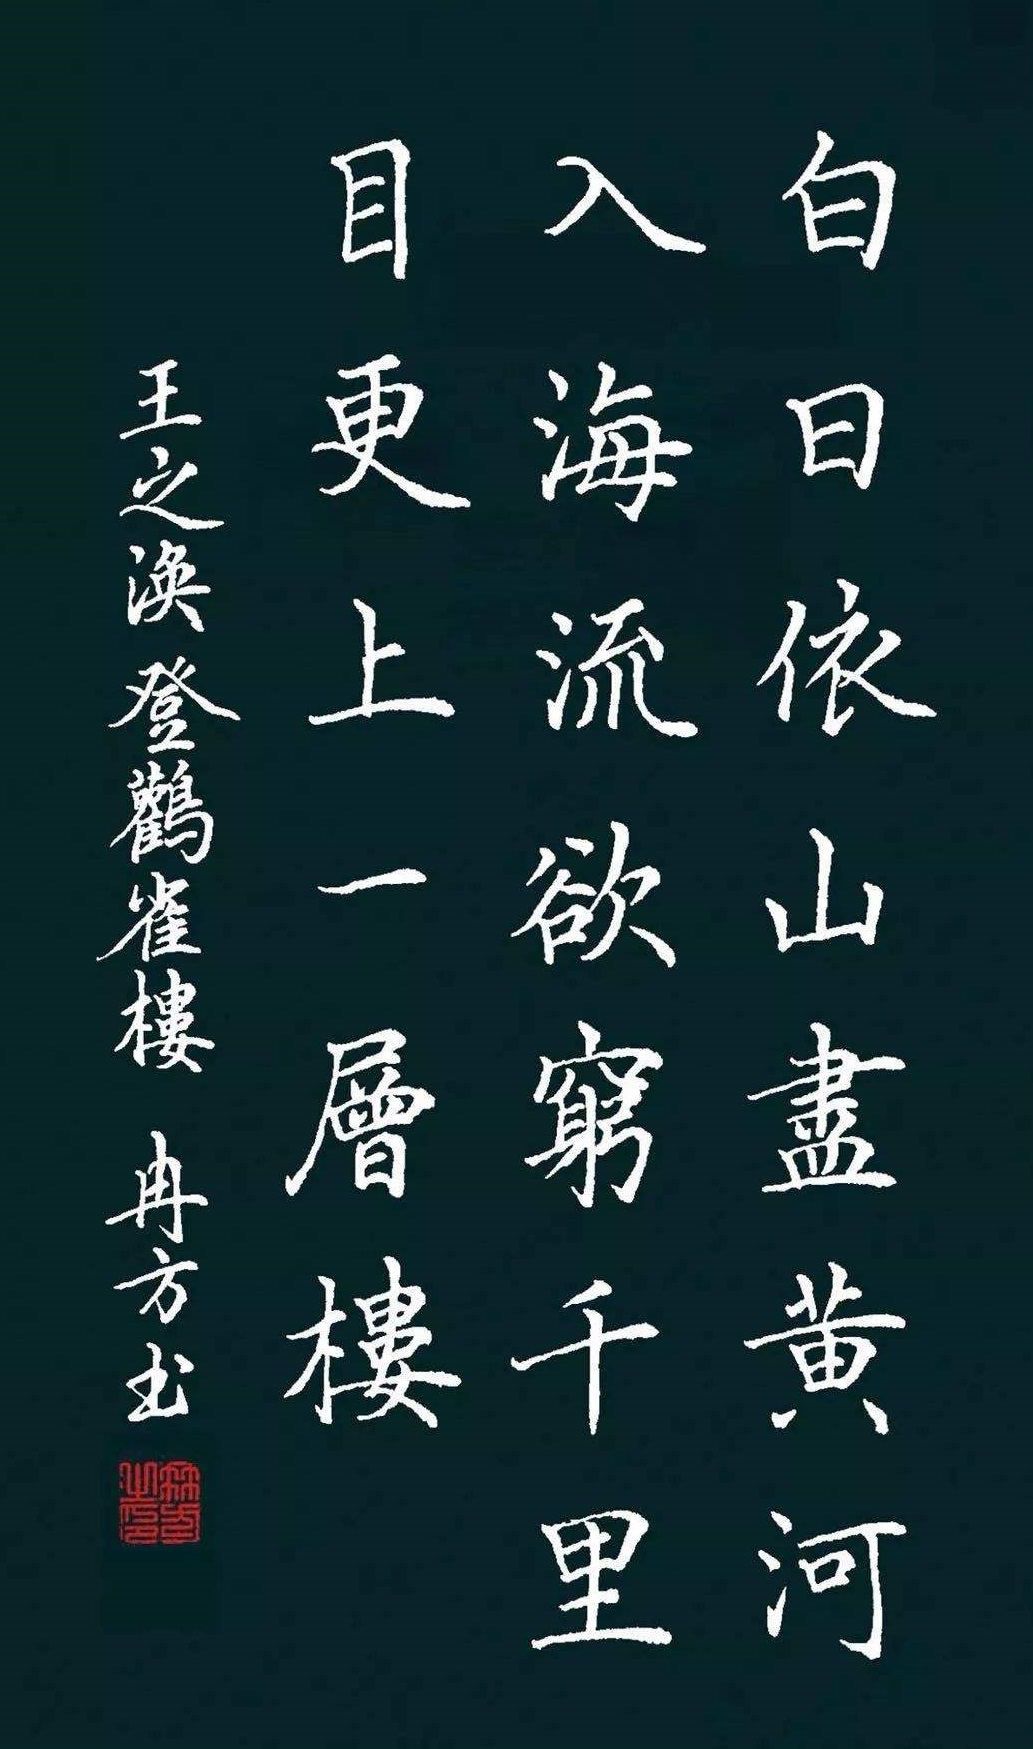 白日依山盡黄河
入海流欲窮千里
目更上一層樓
王之渙登鸛雀樓 冉方书